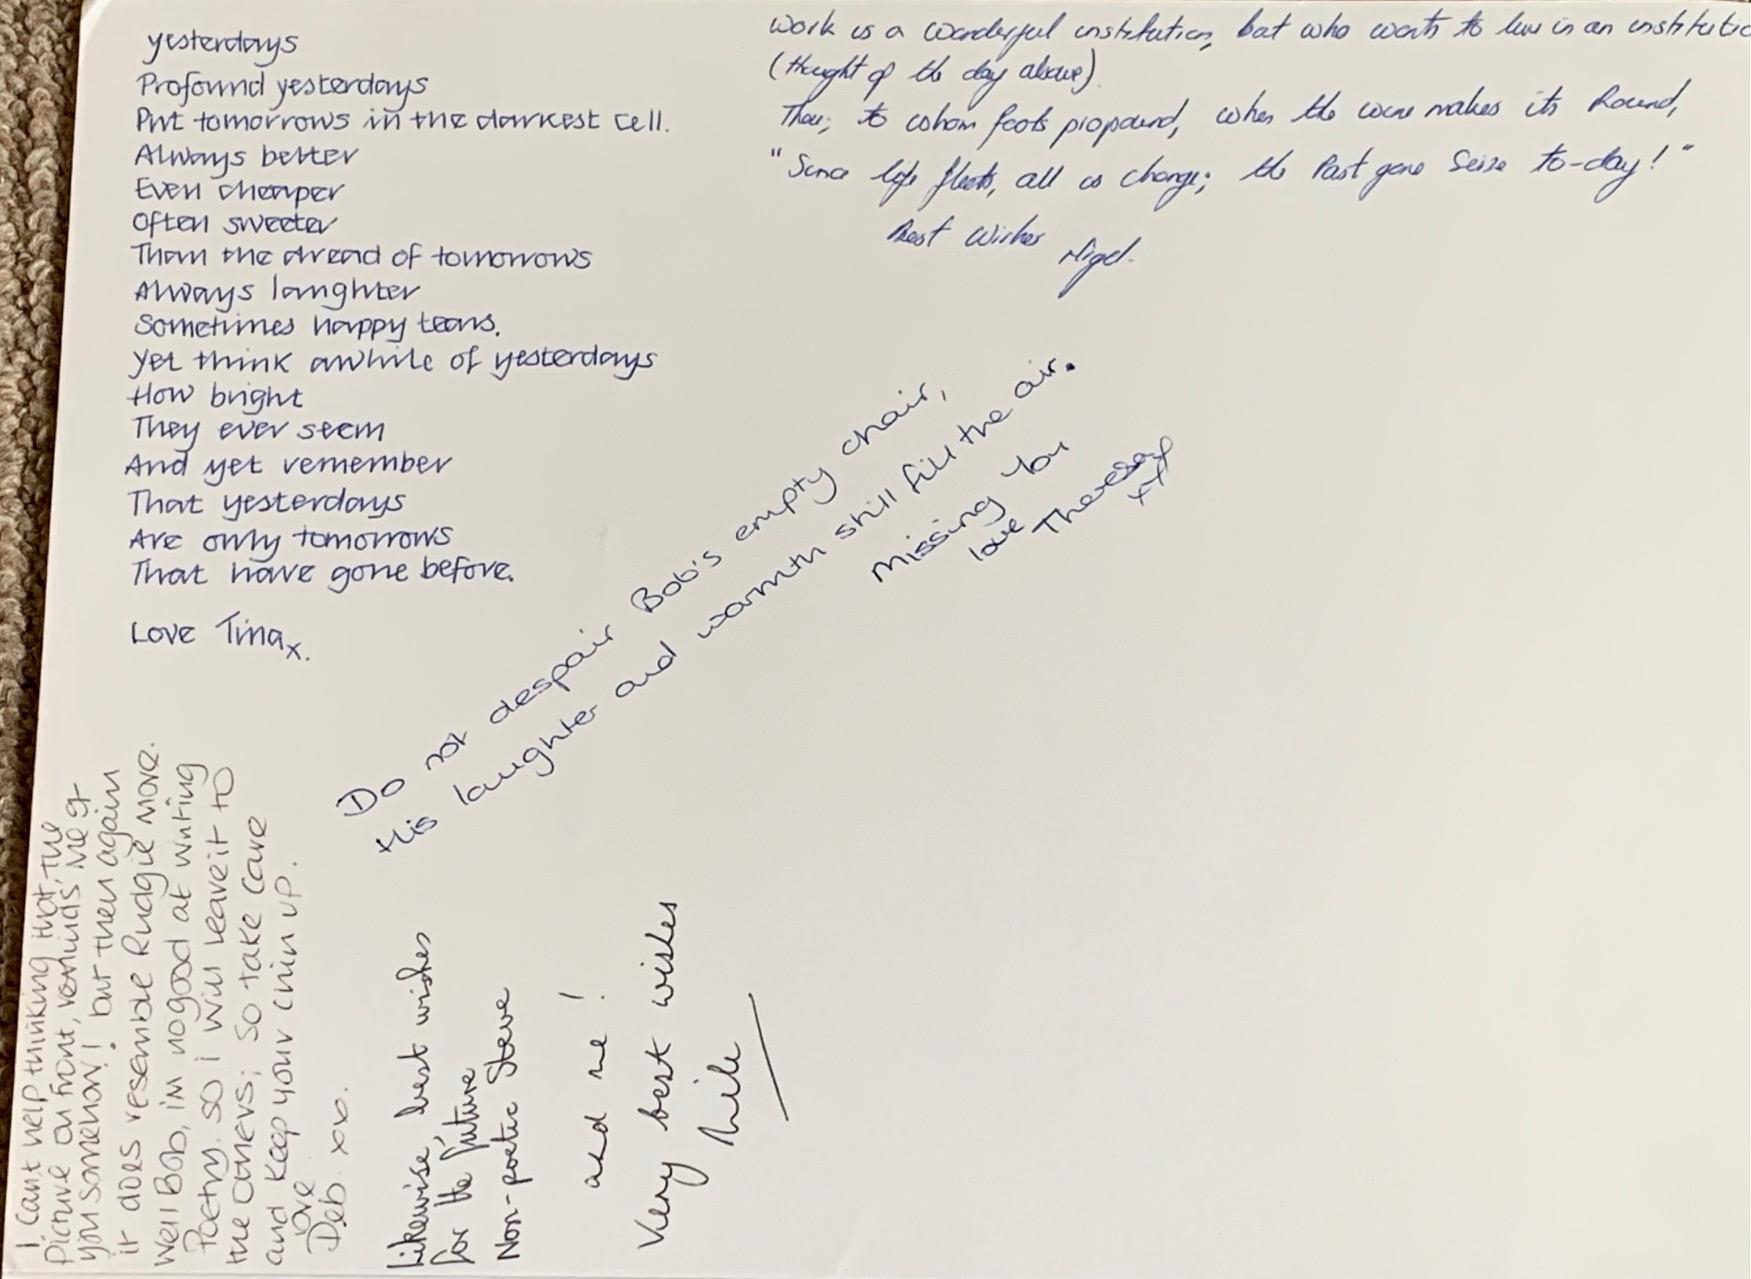 yesterdays
Profound yesterdays
Put tomorrows in the darkest cell.
Always better
Even cheaper
Often sweeter
Than the dread of tomorrows
Always laughter
Sometimes happy tears.
Yet think awhile of yesterdays
How bright
They ever seem
And yet remember
That yesterdays
Are only tomorrows
That have gone before.
Love Tina x.
Work is a wonderful institution, but who wants to live in an institutio
(thought of the day above).
Thou, to whom fools propound, when the wine makes its Round,
"Since life fleets, all is change; the Past gone Seize to-day!"
Best Wishes
Nigel.
Do not despair Bob's empty chair,
His laughter and warmth still fill the air.
Missing You
love Theresa x
xx
I. Cant help thinking that, the
Picture on front, reminds Me of
you somehow! but then again
it does resemble Rudgie more.
Well Bob, im no good at writing
Poetry. so i will leave it to
the others; so take care
and keep your chin up.
love
Deb. xx.
Likewise, best wishes
for the future
Non-poetic Steve
and me!
Very best wishes
Mike